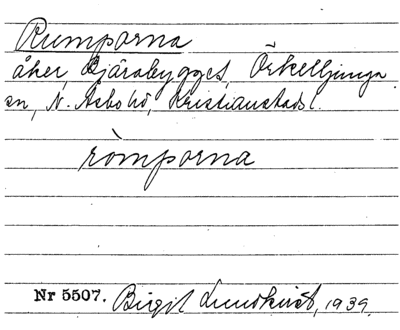 Rumporna
åker, Bjärabygget, Örkelljunga
sn, N. Åsbo hd, Kristianstads l.
ròmporna
Nr 5507. Birgit Lundkvist, 1939.